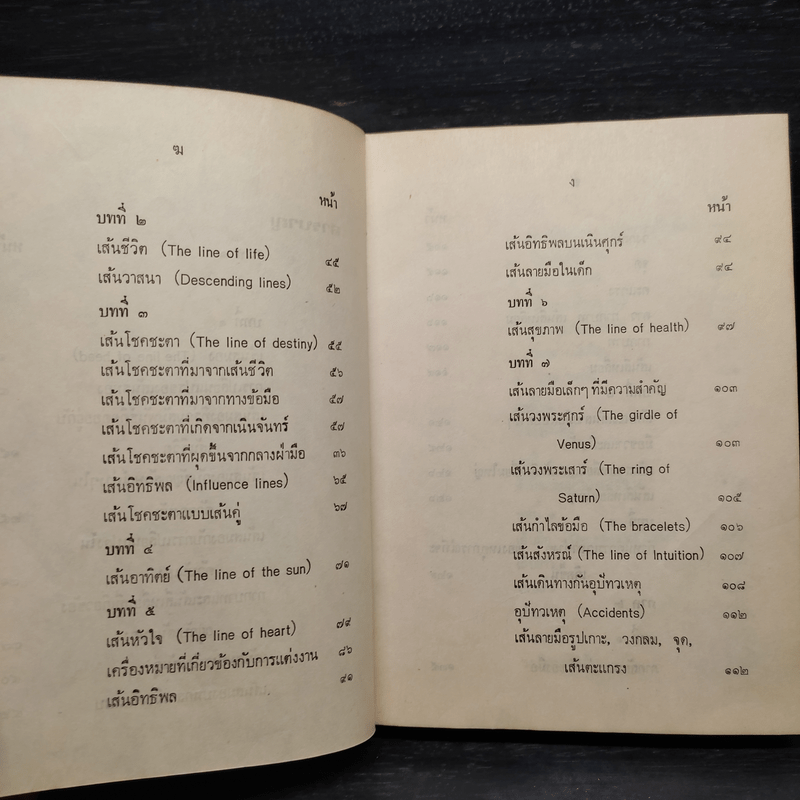 ฆ
หน้า
บทที่ ๒
เส้นชีวิต (The line of life) ๔๕
เส้นวาสนา (Descending lines) ๕๒
บทที่ ๓
เส้นโชคชะตา (The line of destiny) ๕๕
เส้นโชคชะตาที่มาจากเส้นชีวิต ๕๖
เส้นโชคชะตาที่มาจากทางข้อมือ ๕๗
เส้นโชคชะตาที่เกิดจากเนินจันทร์ ๕๗
เส้นโชคชะตาที่ผุดขึ้นจากกลางฝ่ามือ ๓๖
เส้นอิทธิพล (Influence lines) ๖๕
เส้นโชคชะตาแบบเส้นคู่ ๖๗
บทที่ ๔
เส้นอาทิตย์ (The line of the sun) ๗๑
บทที่ ๕
เส้นหัวใจ (The line of heart) ๗๙
เครื่องหมายที่เกี่ยวข้องกับการแต่งงาน ๘๖
เส้นอิทธิพล ๙๑
ง
หน้า
เส้นอิทธิพลบนเนินศุกร์ ๙๔
เส้นลายมือในเด็ก ๙๔
บทที่ ๖
เส้นสุขภาพ (The line of health) ๙๗
บทที่ ๗
เส้นลายมือเล็กๆ ที่มีความสำคัญ ๑๐๓
เส้นวงพระศุกร์ (The girdle of
Venus) ๑๐๓
เส้นวงพระเสาร์ (The ring of
Saturn) ๑๐๕
เส้นกำไลข้อมือ (The bracelets) ๑๐๖
เส้นสังหรณ์ (The line of Intuition) ๑๐๗
เส้นเดินทางกันอุปัทวเหตุ ๑๐๘
อุปัทวเหตุ (Accidents) ๑๑๒
เส้นลายมือรูปเกาะ, วงกลม, จุด,
เส้นตะแกรง ๑๑๒